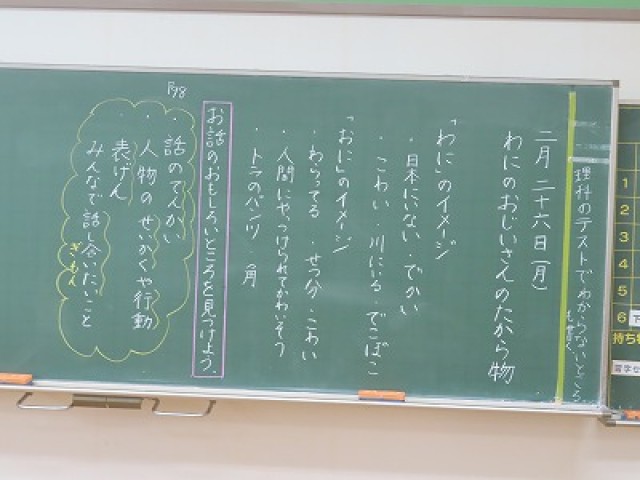 理科のテストでわからないところ
二月二十六日(月)
わにのおじいさんのたから物
「わに」のイメージ
・日本にいない・でかい
・こわい・川にいる・でこぼこ
「おに」のイメージ
・わらってる・せつ分・こわい
・人間にやっつけられてかわいそう
・トラのパンツ・角
お話のおもしろいところを見つけよう。
P98
・話のてんかい
・人物のせいかくや行動
・表げん
・みんなで話し合いたいこと
ぎもん
1
2
3
4
5
6
下
持ち物